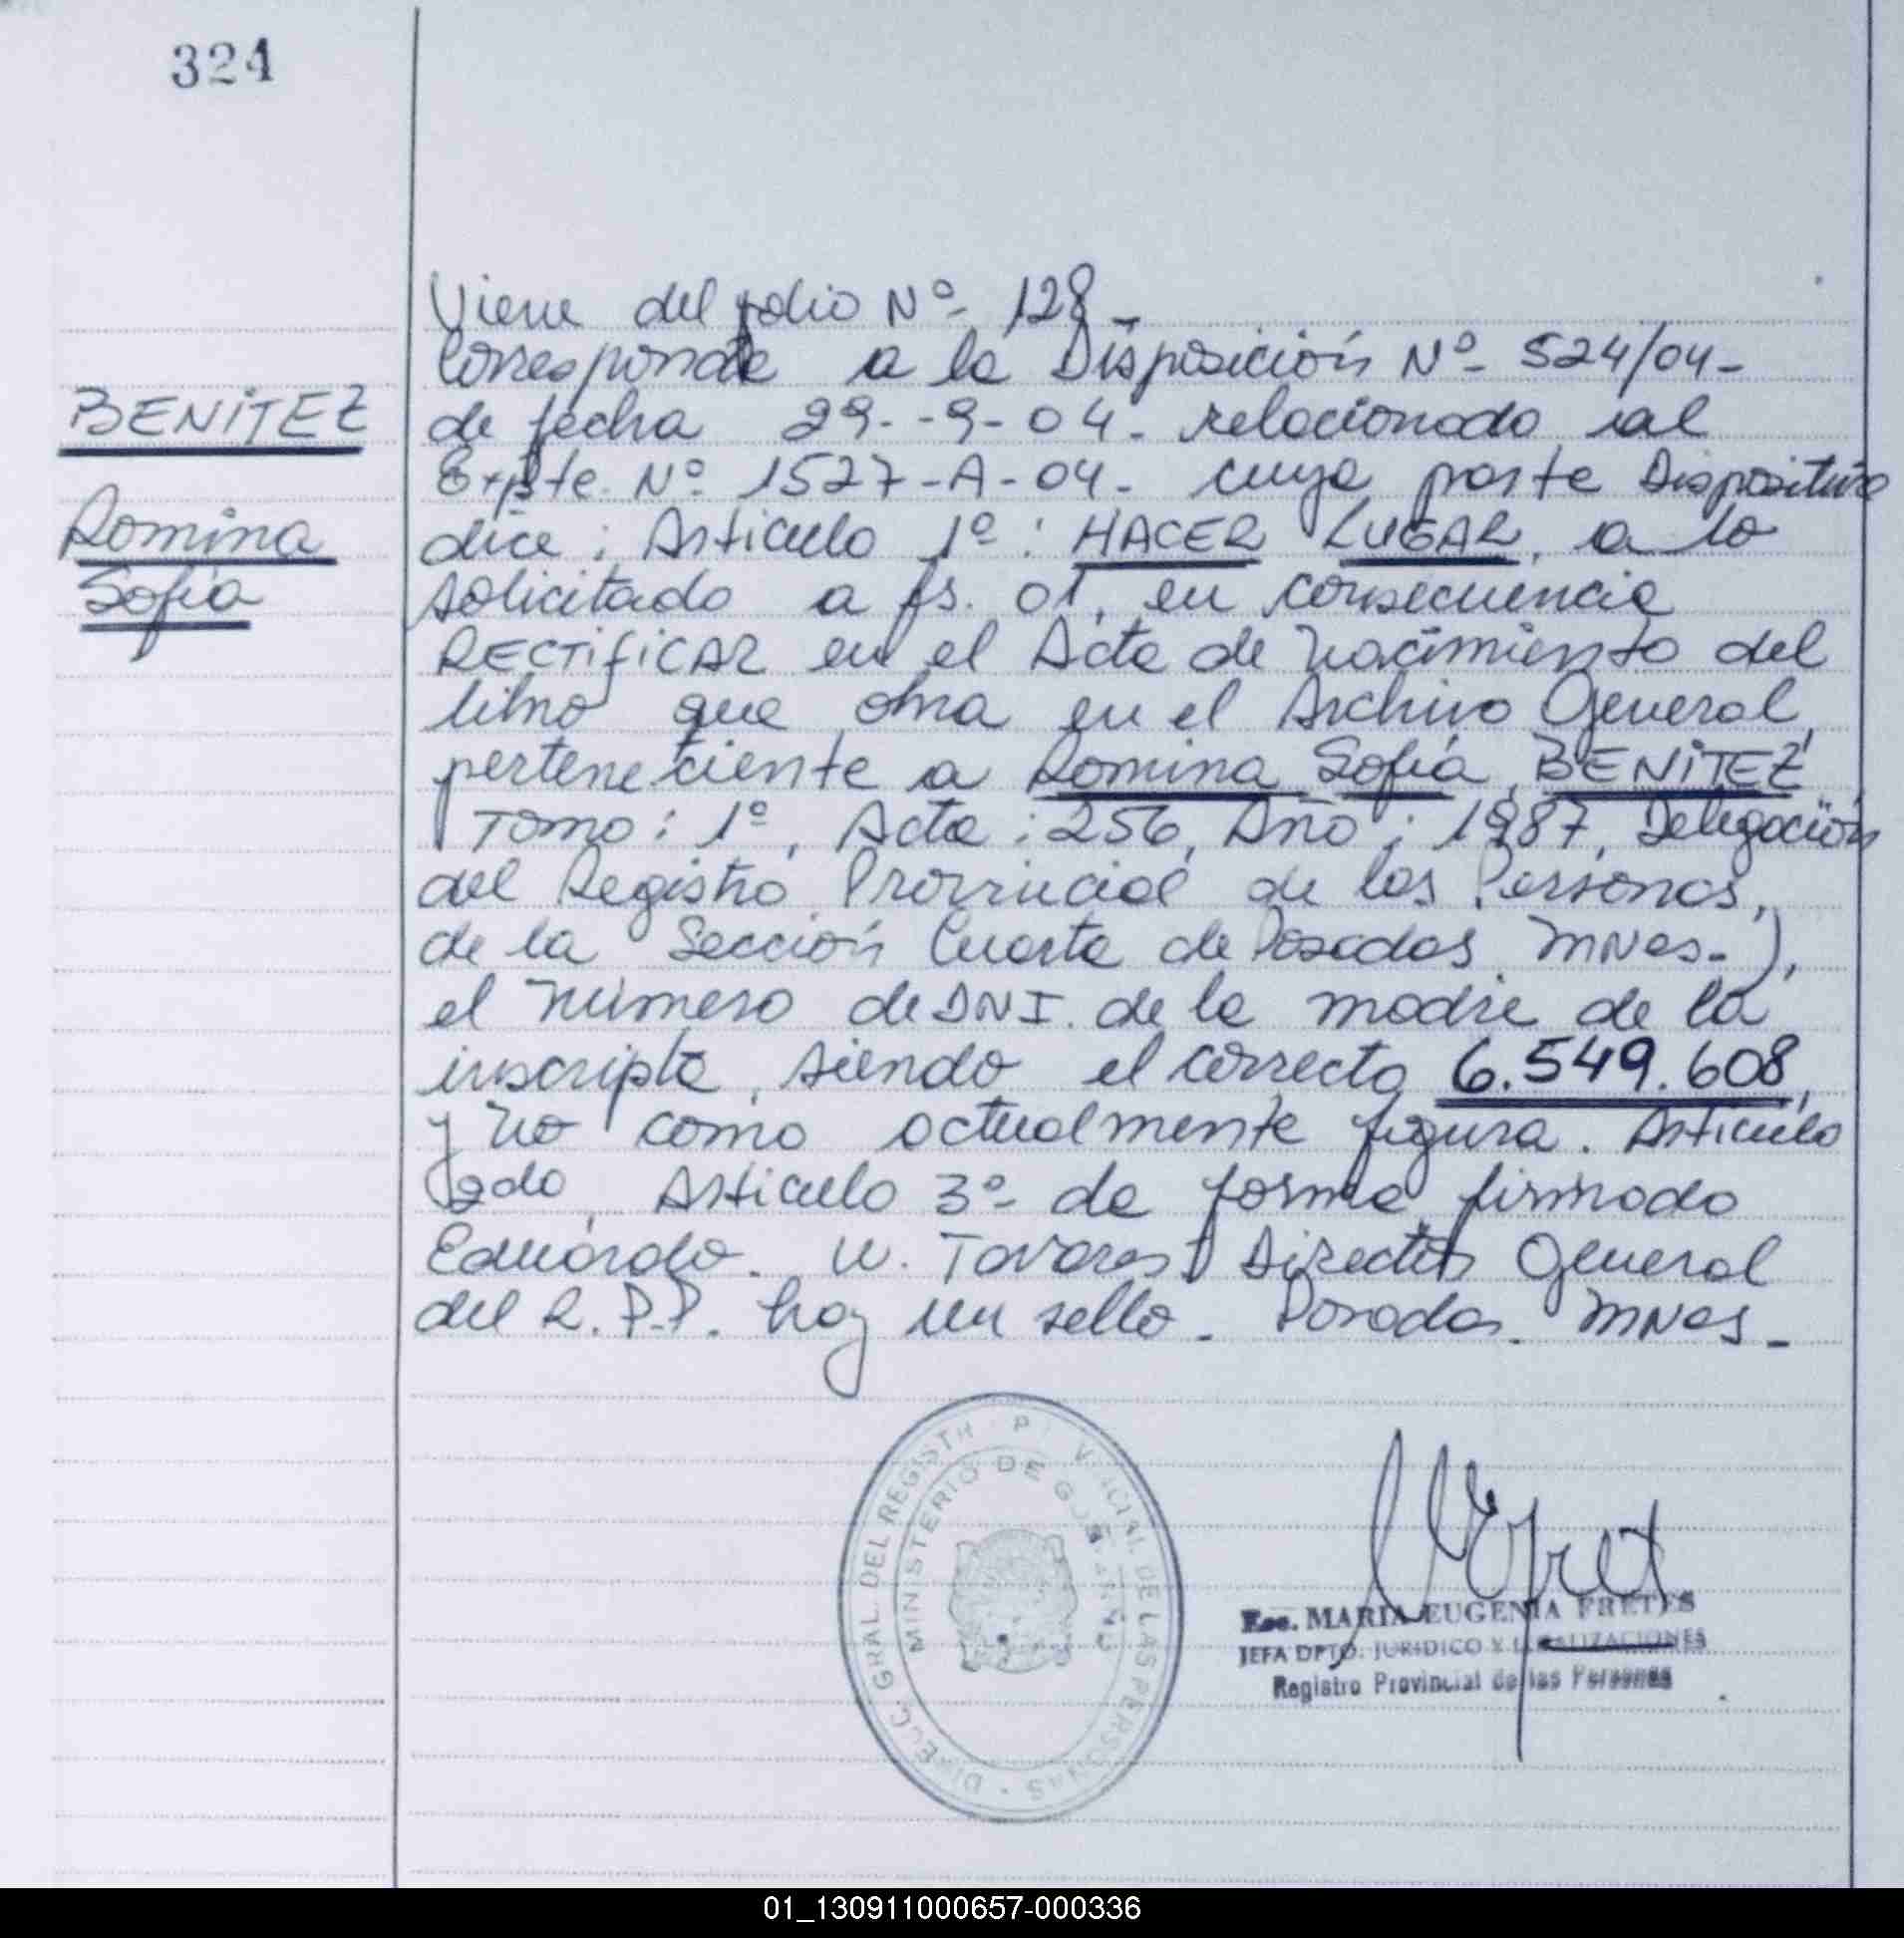 324
BENITEZ
Romina
Sofia
Viene del folio Nº 128_
Corresponde a la Disposición Nº 524/04-
de fecha 29--9-04- relacionado al
Expte. Nº 1527-A-04- cuya parte Dispositiva
dice: Articulo 1º: HACER LUGAR, a lo
solicitado a fs. 01, en consecuencia
RECTIFICAR en el Acta de nacimiento del
libro que obra en el Archivo General,
perteneciente a Romina Sofia BENITEZ
Tomo: 1º, Acta: 256, Año: 1987, Delegación
del Registro Provincial de las Personas,
de la Sección Cuarta de Posadas Mnes-),
el número de DNI. de la madre de la
inscripta, siendo el correcto 6.549.608,
y no como actualmente figura. Articulo
2do, Articulo 3º de forma, firmado
Eduardo. W. Tavares Director General
del R.P.P. hay un sello_ Posadas. Mnes_
DIRECC. GRAL. DEL REGISTR PR V NCIAL DE LAS PERSONAS
MINISTERIO DE GOBIERNO
Esc. MARIA EUGENIA FRETES
JEFA DPTO. JURIDICO Y LEGALIZACIONES
Registro Provincial de las Personas
01_130911000657-000336